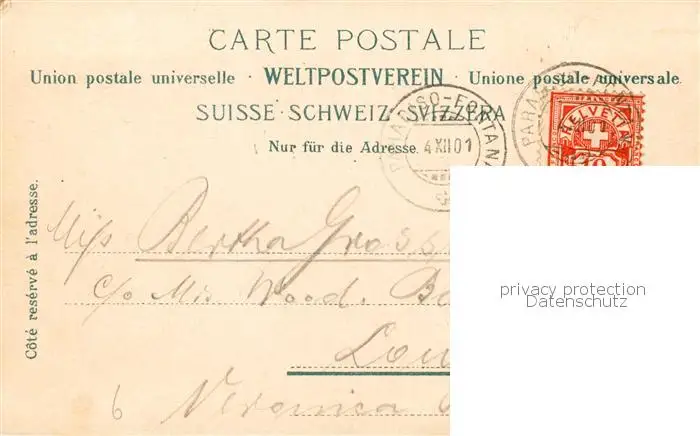 CARTE POSTALE
Union postale universelle · WELTPOSTVEREIN · Unione postale universale
SUISSE · SCHWEIZ · SVIZZERA
Nur für die Adresse.
PARADISO-FONTANA
4 XII 01
HELVETIA
10
Côté resérvé à l'adresse.
Miss Bertha
c/o Mrs Wood.
Lou
6 Veronica
privacy protection
Datenschutz